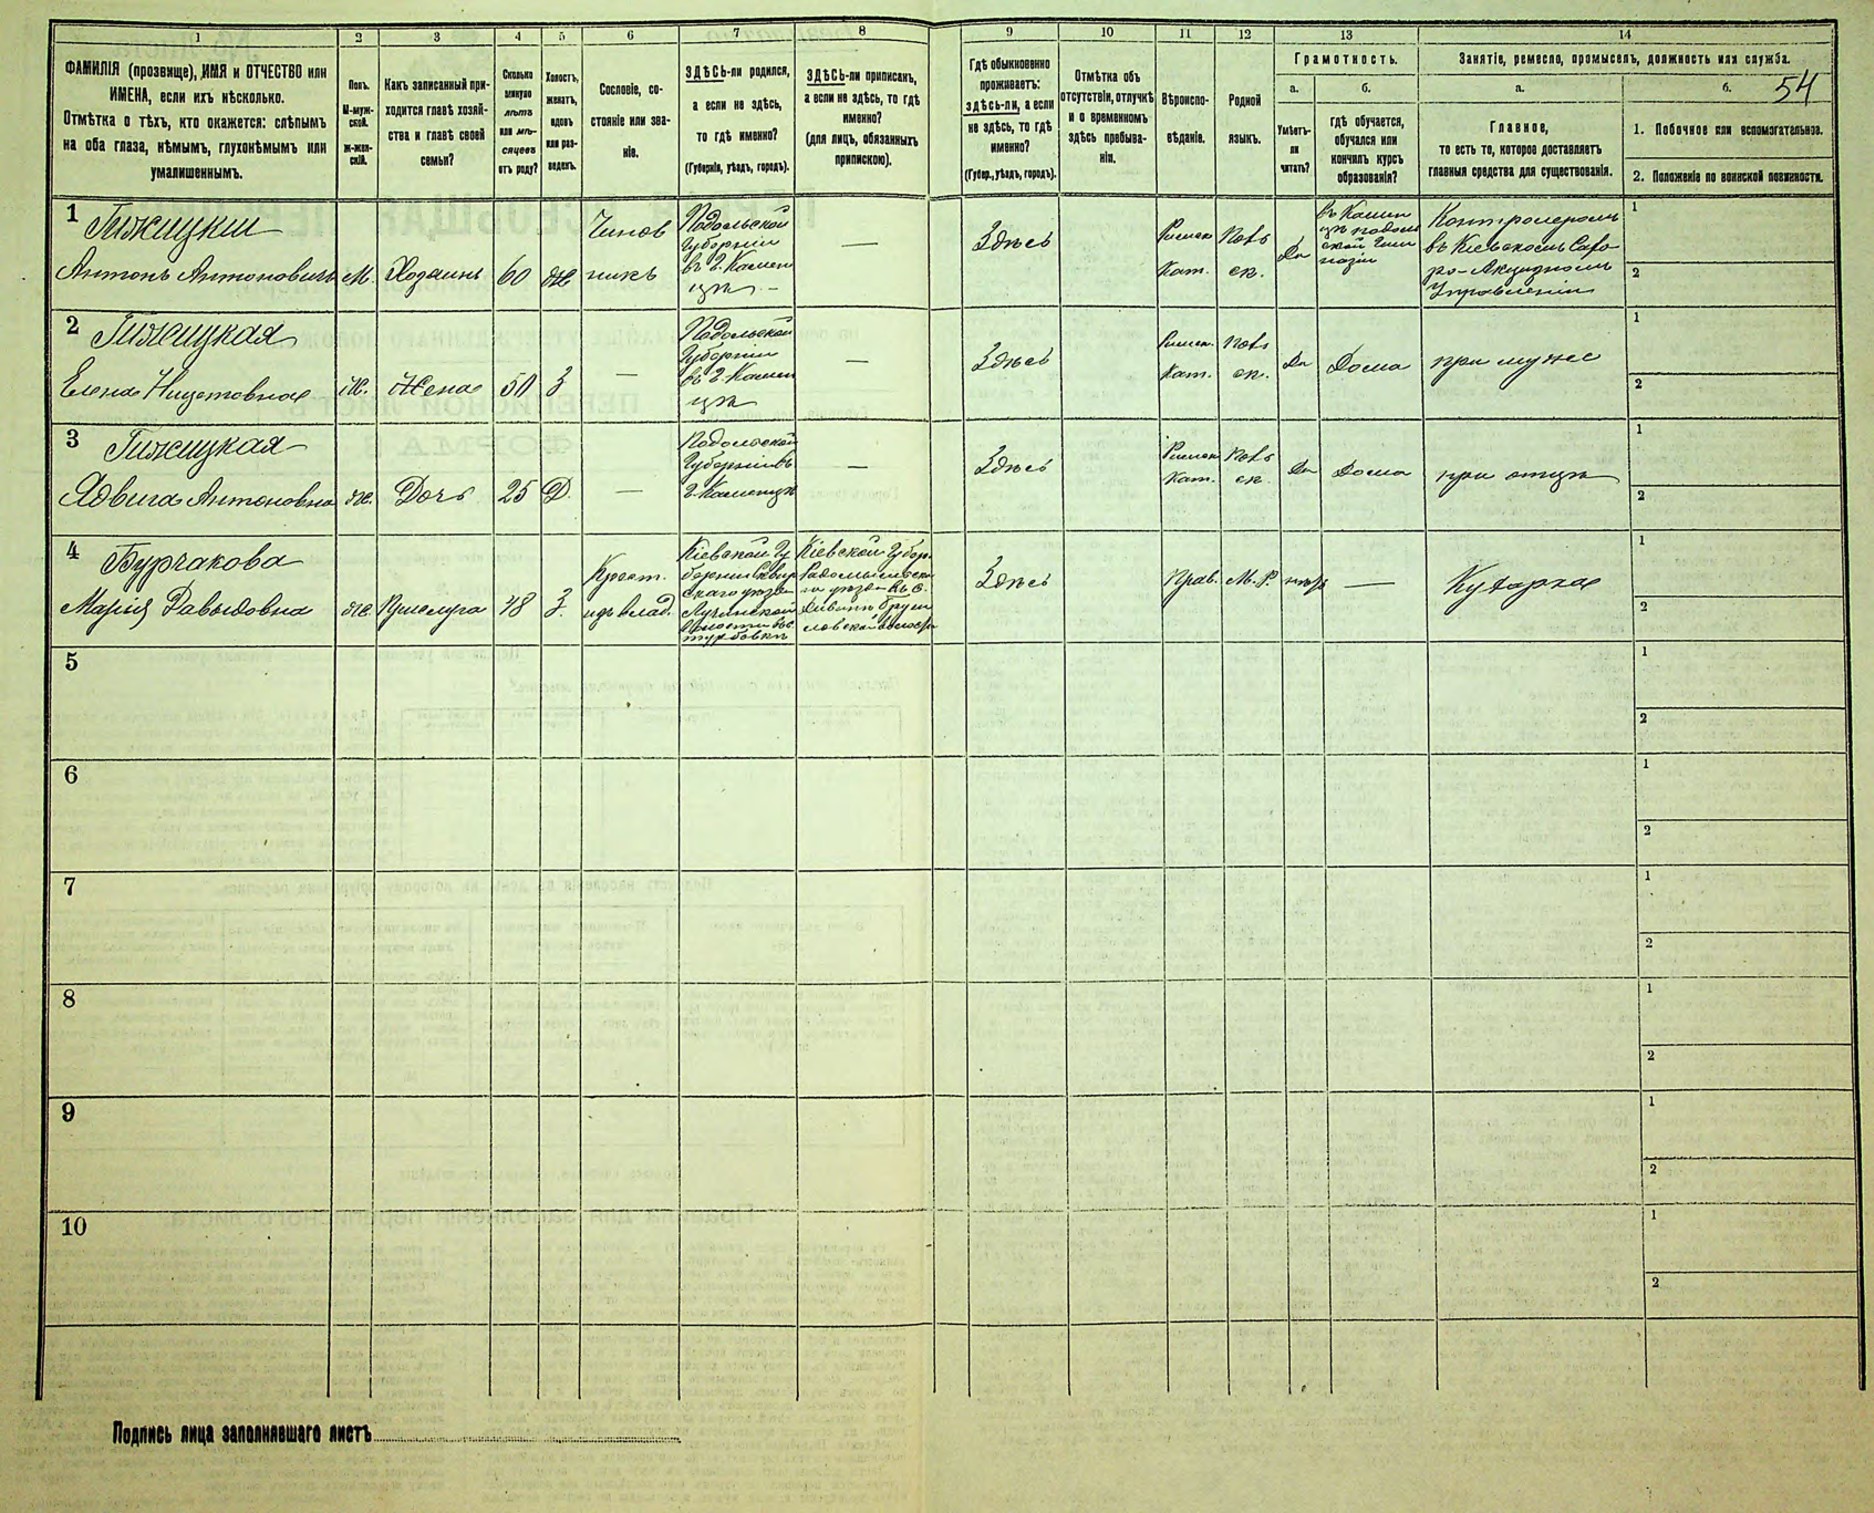 1 2 3 4 5 6 7 8 9 10 11 12 13 14
ФАМИЛІЯ (прозвище), ИМЯ и ОТЧЕСТВО или
ИМЕНА, если ихъ нѣсколько.
Отмѣтка о тѣхъ, кто окажется: слѣпымъ
на оба глаза, нѣмымъ, глухонѣмымъ или
умалишеннымъ.
Полъ.
М-муж-
ской.
ж-жен-
скій.
Какъ записанный при-
ходится главѣ хозяй-
ства и главѣ своей
семьи?
Сколько
минуло
лѣтъ
или мѣ-
сяцевъ
отъ роду?
Холостъ,
женатъ,
вдовъ
или раз-
веденъ.
Сословіе, со-
стояніе или зва-
ніе.
ЗДѢСЬ-ли родился,
а если не здѣсь,
то гдѣ именно?
(Губернія, уѣздъ, городъ).
ЗДѢСЬ-ли приписанъ,
а если не здѣсь, то гдѣ
именно?
(для лицъ, обязанныхъ
припискою).
Гдѣ обыкновенно
проживаетъ:
здѣсь-ли, а если
не здѣсь, то гдѣ
именно?
(Губер., уѣздъ, городъ).
Отмѣтка объ
отсутствіи, отлучкѣ
и о временномъ
здѣсь пребыва-
ніи.
Вѣроиспо-
вѣданіе.
Родной
языкъ.
Грамотность.
а.
Умѣетъ-
ли
читать?
б.
гдѣ обучается,
обучался или
кончилъ курсъ
образованія?
Занятіе, ремесло, промыселъ, должность или служба.
а.
Главное,
то есть то, которое доставляетъ
главныя средства для существованія.
б.
54
1. Побочное или вспомогательное.
2. Положеніе по воинской повинности.
1
Гижицкій
Антонъ Антоновичъ
М.
Хозяинъ
60
же
Чинов
никъ
Подольской
Губерніи
въ г. Камен
цѣ
—
Здѣсь
Римск
Кат.
Поль
ск.
Да
въ Камен
цѣ подоль
ской Гим
назіи
Контролеромъ
въ Кіевскомъ
Акцизномъ
Управленіи
1
2
2
Гижицкая
Елена
Ж.
Жена
50
З
—
Подольской
Губерніи
въ г. Камен
цѣ
—
Здѣсь
Римск.
Кат.
Поль
ск.
Да
Дома
при мужѣ
1
2
3
Гижицкая
Ядвига Антоновна
Ж.
Дочь
25
Д.
—
Подольской
Губерніи въ
г. Каменцѣ
—
Здѣсь
Римск
Кат.
Поль
ск.
Да
Дома
при отцѣ
1
2
4
Бурчакова
Марія Давыдовна
Ж.
Прислуга
48
З.
Крест.
изъ влад.
Кіевской Гу
берніи Сквир
скаго уѣзда
Кіевской Губер.
Радомысльска
го уѣзда въ с.
Здѣсь
Прав.
М. Р.
нѣтъ
—
Кухарка
1
2
5
1
2
6
1
2
7
1
2
8
1
2
9
1
2
10
1
2
Подпись лица заполнявшаго листъ